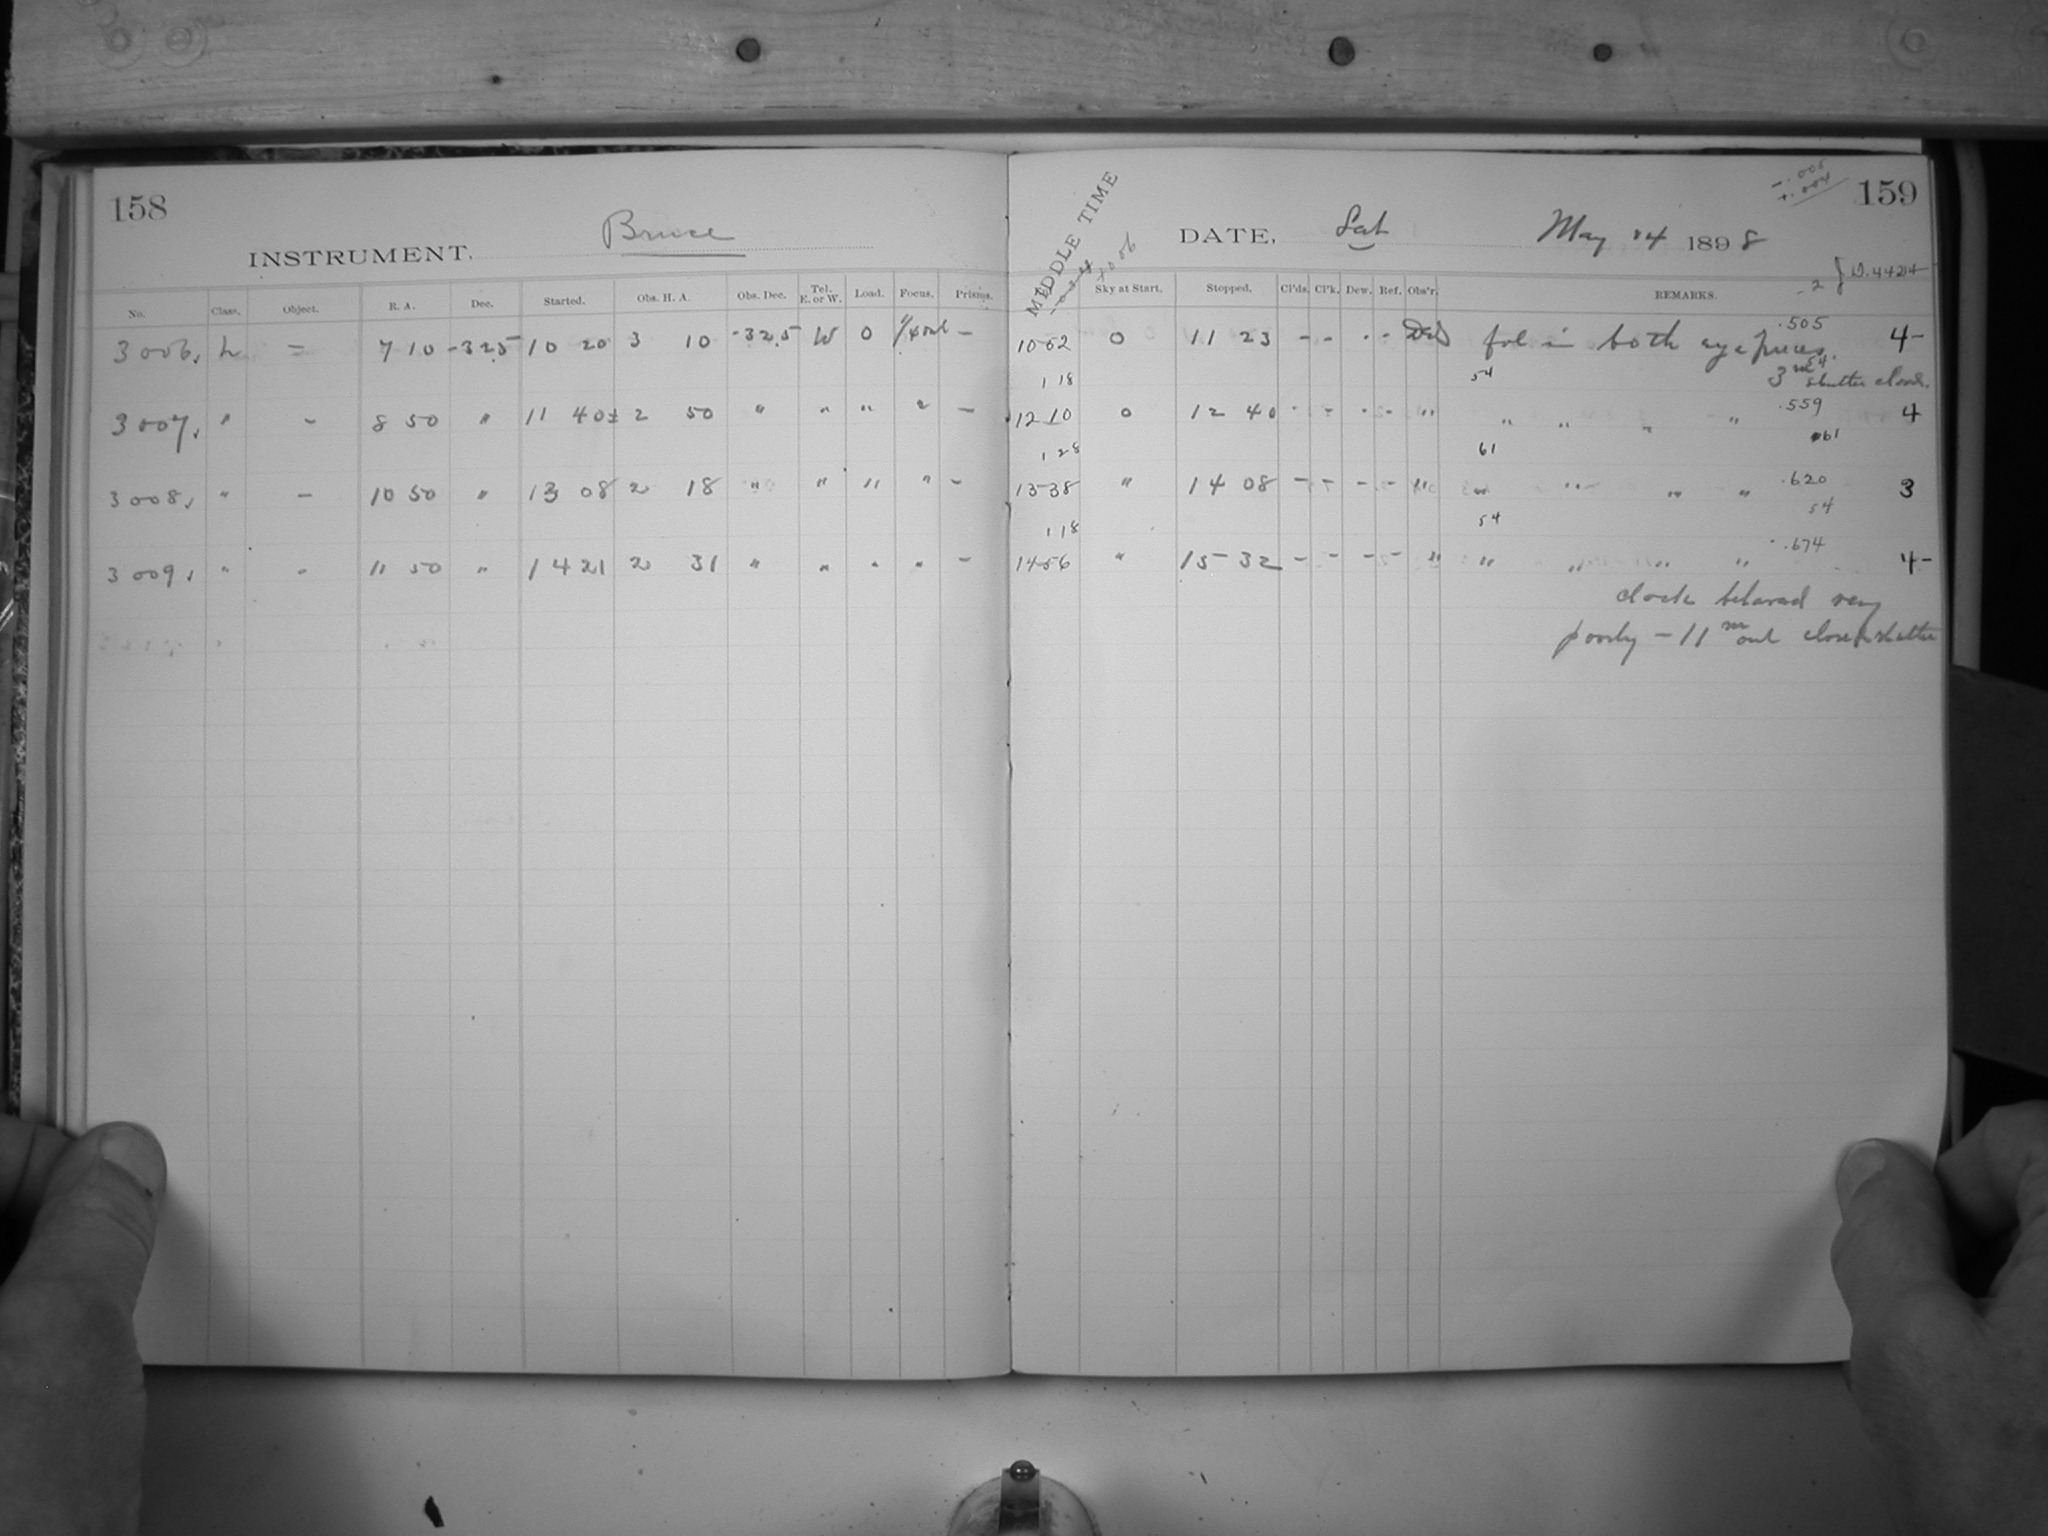 158
INSTRUMENT, Bruce
No. Class. Object. R. A. Dec. Started. Obs. H. A. Obs. Dec. Tel. E. or W. Load. Focus. Prisms.
3006, L - 7 10 -32.5 10 20 3 10 -32.5 W 0 1/4 out -
3007, " - 8 50 " 11 40± 2 50 " " " " -
3008, " - 10 50 " 13 08 2 18 " " " " -
3009, " - 11 50 " 14 21 2 31 " " " " -
159
-.005
+.004
DATE, Sat May 14 1898
MIDDLE TIME Sky at Start. Stopped. Cl'ds. Cl'k. Dew. Ref. Obs'r. REMARKS.
-2 } D.4424
10-52 0 11 23 - - - - fol in both eye pieces. .505 4-
1 18 54 54
3m shutter closed.
12-10 0 12 40 - - - - " " " " " .559 4
1 28 61 61
13-38 " 14 08 - - - - " " " " " .620 3
1 18 54 54
14-56 " 15 32 - - - - " " " " " .674 4-
clock behaved very
poorly - 11m out closed shutter